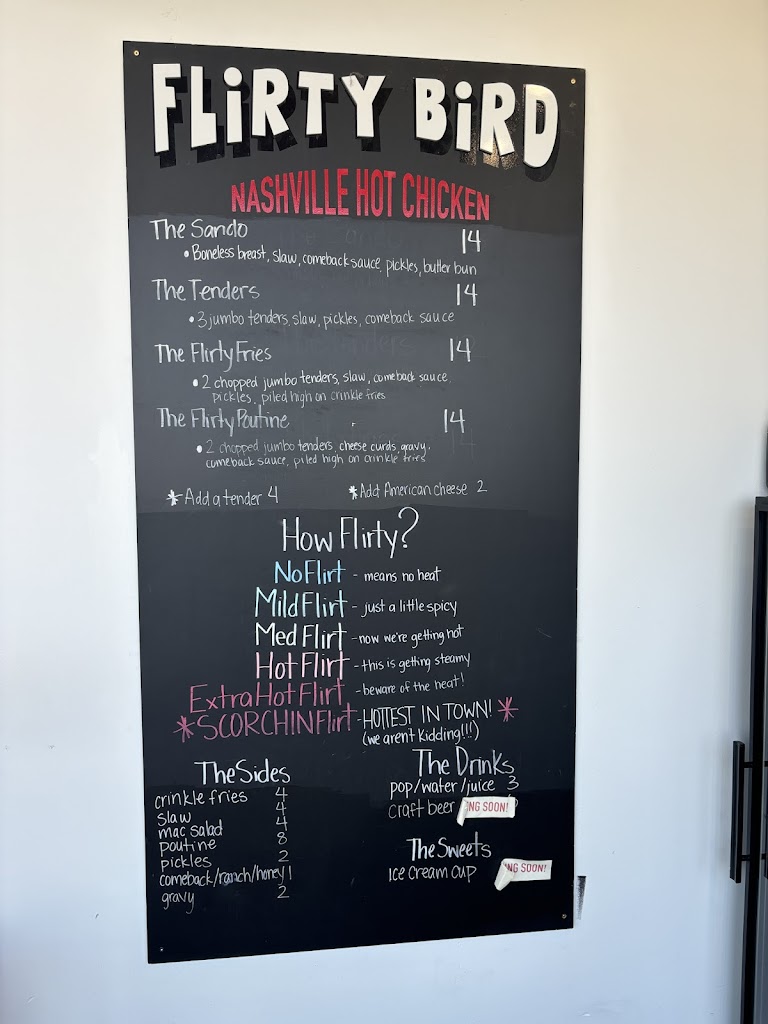 FLiRTY BiRD
NASHVILLE HOT CHICKEN
The Sando 14
• Boneless breast, slaw, comeback sauce, pickles, butter bun
The Tenders 14
• 3 jumbo tenders, slaw, pickles, comeback sauce
The Flirty Fries 14
• 2 chopped jumbo tenders, slaw, comeback sauce
pickles, piled high on crinkle fries
The Flirty Poutine 14
• 2 chopped jumbo tenders, cheese curds, gravy,
comeback sauce, piled high on crinkle fries
* Add a tender 4 * Add American cheese 2
How Flirty?
No Flirt - means no heat
Mild Flirt - just a little spicy
Med Flirt - now we're getting hot
Hot Flirt - this is getting steamy
Extra Hot Flirt - beware of the heat!
* SCORCHIN Flirt - HOTTEST IN TOWN! *
(we arent kidding!!!)
The Sides
crinkle fries 4
slaw 4
mac salad 4
poutine 8
pickles 2
comeback/ranch/honey 1
gravy 2
The Drinks
pop/water/juice 3
craft beer NG SOON!
The Sweets
Ice Cream Cup NG SOON!